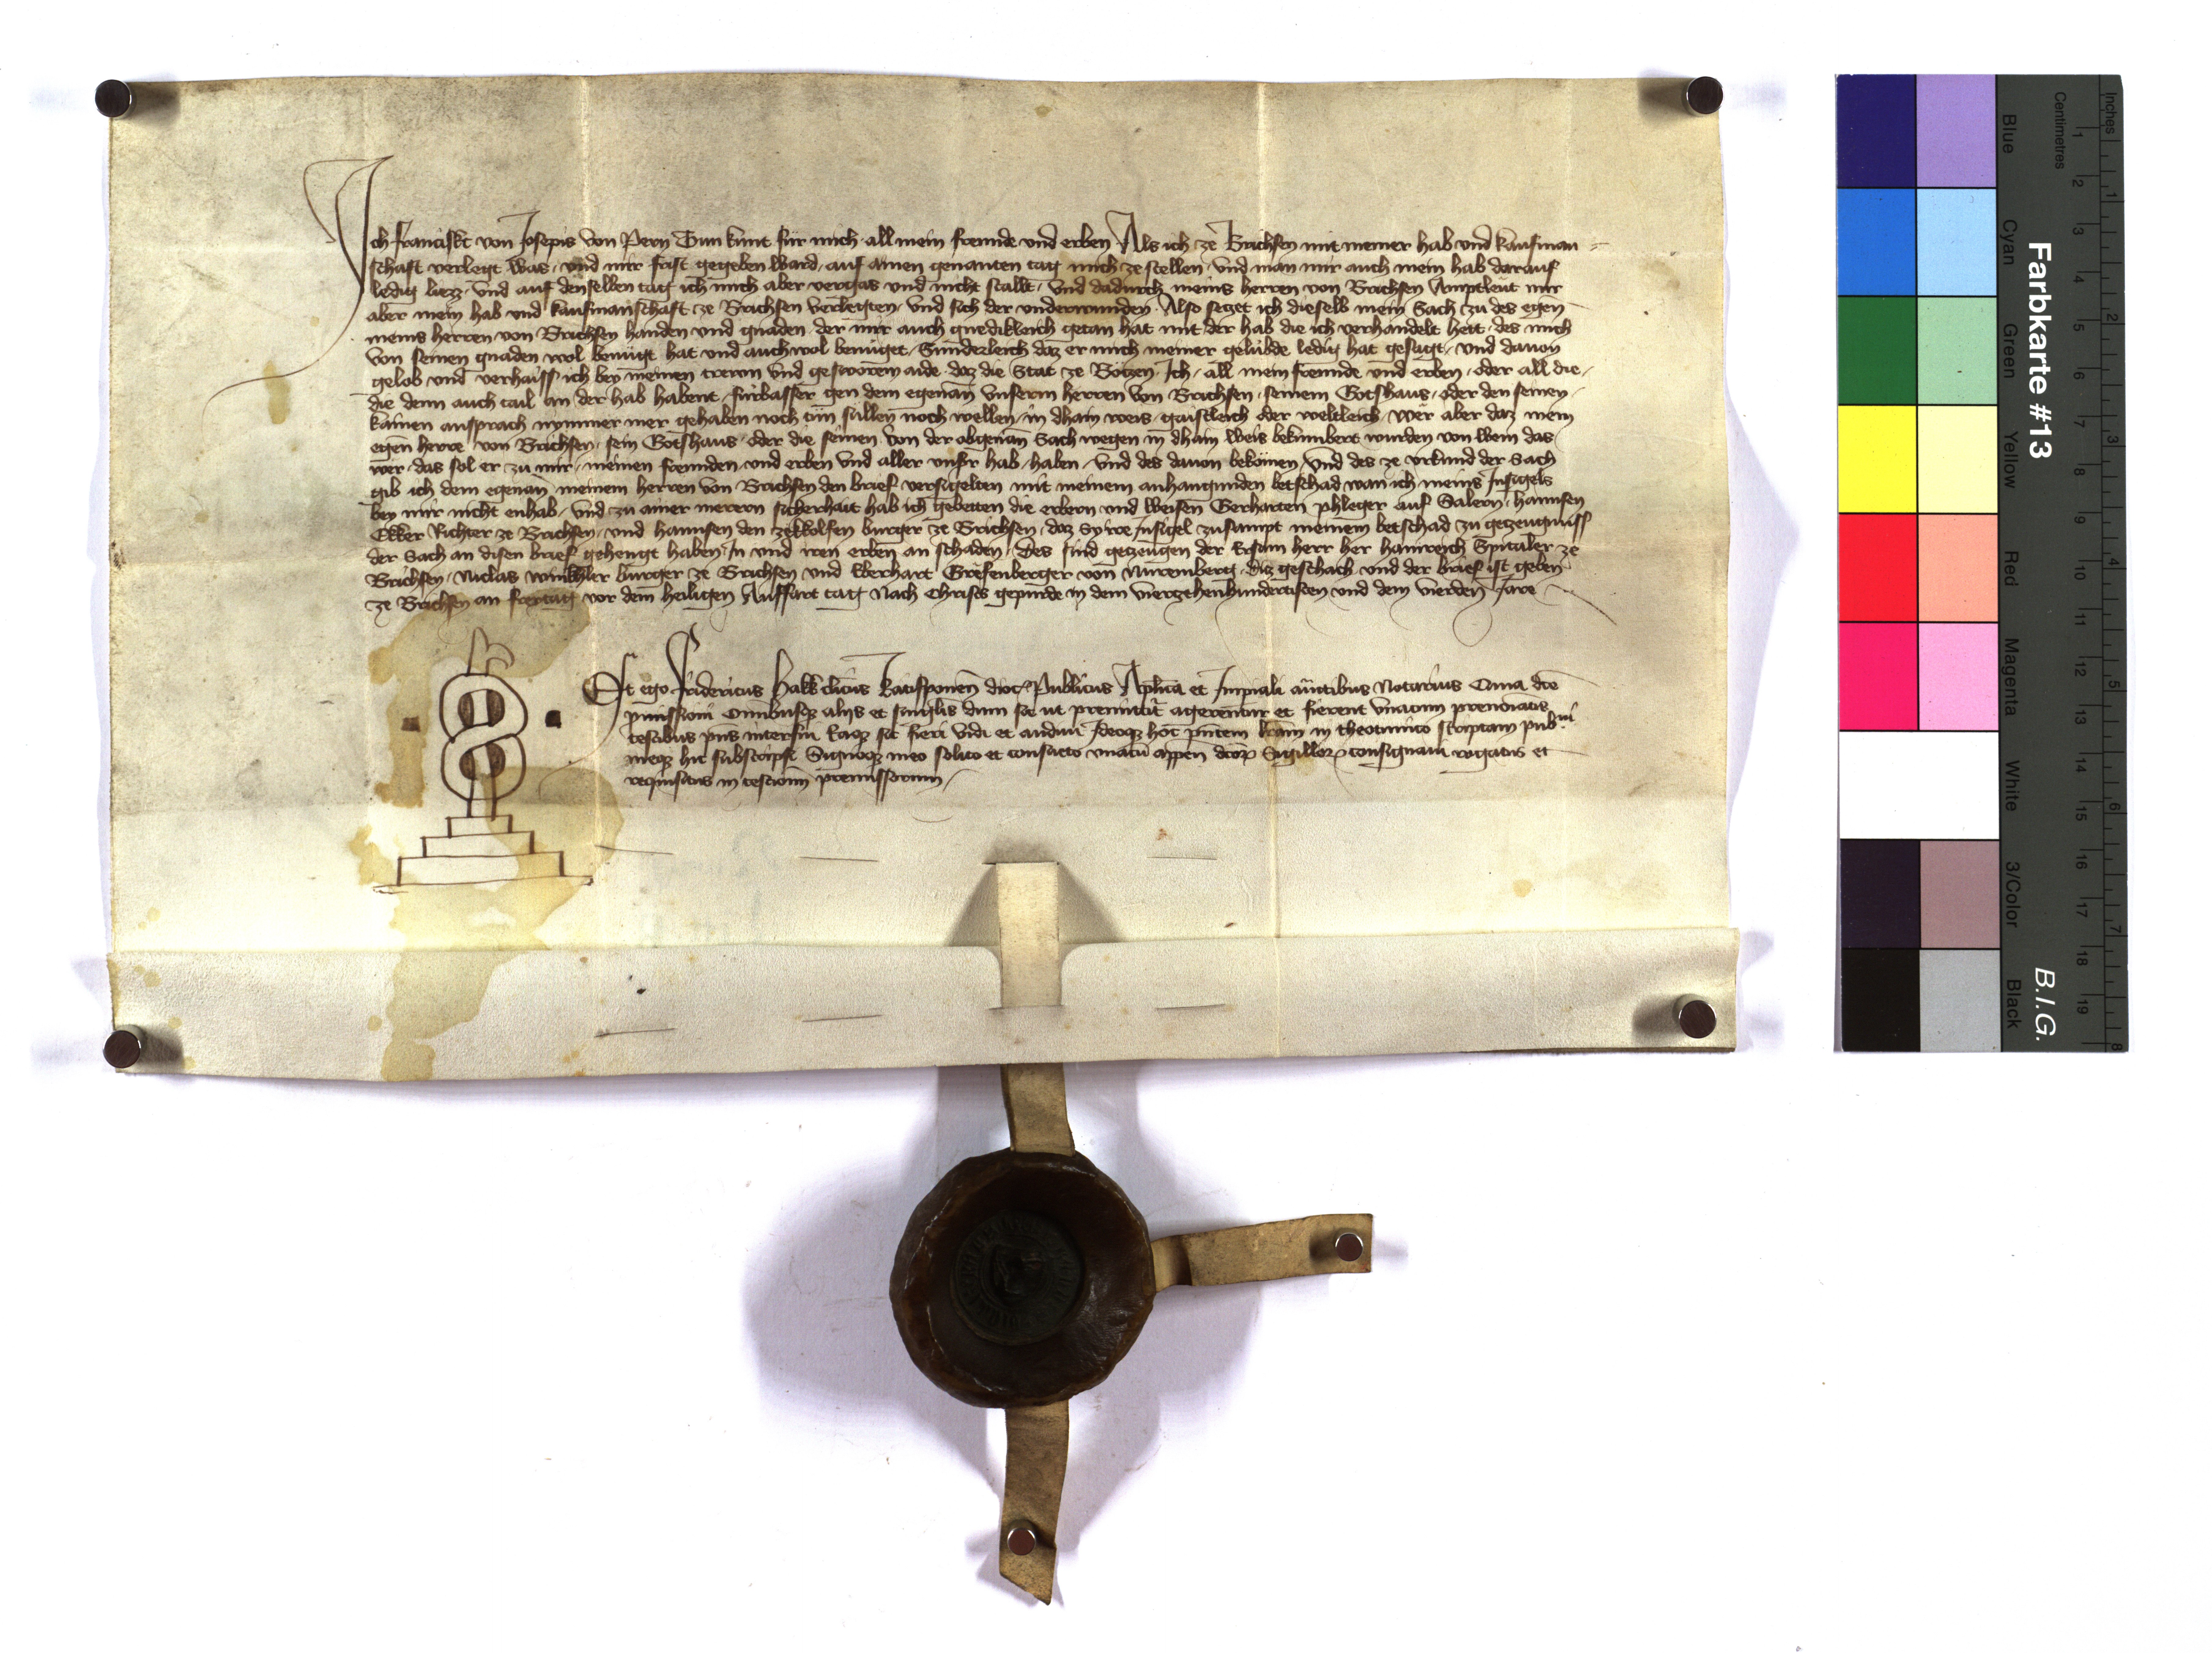 Ich franciskt von Josepis von Pern Tun kunt für mich all mein freunde und erben Als ich ze Brichsen mit meiner hab und kaufman=
schaft verlegt was, und mir frist gegeben ward, auf ainen genanten tag mich ze stellen, und man mir auch mein hab darauf
ledig liezz, und auf denselben tag ich mich aber vergas und nicht stallt, und dadurch meins herren von Brichsen Amptleüt mir
aber mein hab und kaufmanschaft ze Brichsen verlegten, und sich der underwunden, Also seczet ich dieselb mein Sach zu des egen
meins herren von Brichsen handen und gnaden, der mir auch gnedikleich getan hat mit der hab die ich verhandelt hett, des mich
von seinen gnaden wol benügt hat und auch wol benüget, Sunderleich daz er mich meiner gelübde ledig hat gesagt, und dauon
gelob und verhaiss ich bey meinen trewn und gesworem aide, daz die Stat ze Botzen, Ich, all mein freunde und erben, oder all die,
die denn auch tail an der hab habent, fürbasser gen dem egenan unserm herren von Brichsen, seinem Gotshaus, oder den seinen,
kainen ansprach nymmer mer gehaben noch tün süllen noch wellen, in dhain weis, gaistleich oder weltleich, wer aber daz mein
egen herre von Brichsen, sein Gotshaus, oder die seinen, von der obgenan Sach wegen in dhain weis bekümbert wurden von wem das
wer, das sol er zu mir, meinen freunden und erben und aller unser hab, haben, und des dauon bekomen, Und des ze urkund der Sach
gib ich dem egenan meinem herren von Brichsen den brief versigelten mit meinem anhangunden betschad wan ich meins Insigels
bey mir nicht enhab, und zu ainer merern sicherhait hab ich gebetten die erbern und weisen Gerharten phleger auf Salern, hannsen
Ekker Richter ze Brichsen, und hannsen den zekkolfen burger ze Brichsen, daz Sy ire Insigel zusampt meinem betschad zu getzeugnüss
der Sach an disen brief gehengt haben, In und iren erben an schaden, Des sind getzeugen der Ersam herr her hainreich Spitaler ze
Brichsen, Niclas winkhler burger ze Brichsen und Eberhart Grefenberger von Nüremberg, Diz geschach und der brief ist geben
ze Brichsen an freytag vor dem heiligen Auffart tag Nach Christs gepurde in dem vierzehenhundertisten und dem vierden Jare
Et ego Fridericus hakk clicus Ratisponen dioc Publicus Aplica et Impiali auctibus Notarius Quia dce
pmissioni Omnibusq alijs et singlis dum sic ut premittit agerentur et fierent Unacum prenoiatis
testibus pns interfui Eaq sic fieri vidi et audiui Ideoq hoc pntem lram in theotunico scriptam pub
meq hic subscripsi Signoq meo solito et consueto unacu appen dcoR Sigillor consignaui rogatus et
requisitus in testium premissorum
Farbkarte #13
B.I.G.
Inches
Centimetres
Blue
Cyan
Green
Yellow
Red
Magenta
White
3/Color
Black
1 2 3 4 5 6 7 8 9 10 11 12 13 14 15 16 17 18 19
1 2 3 4 5 6 7 8